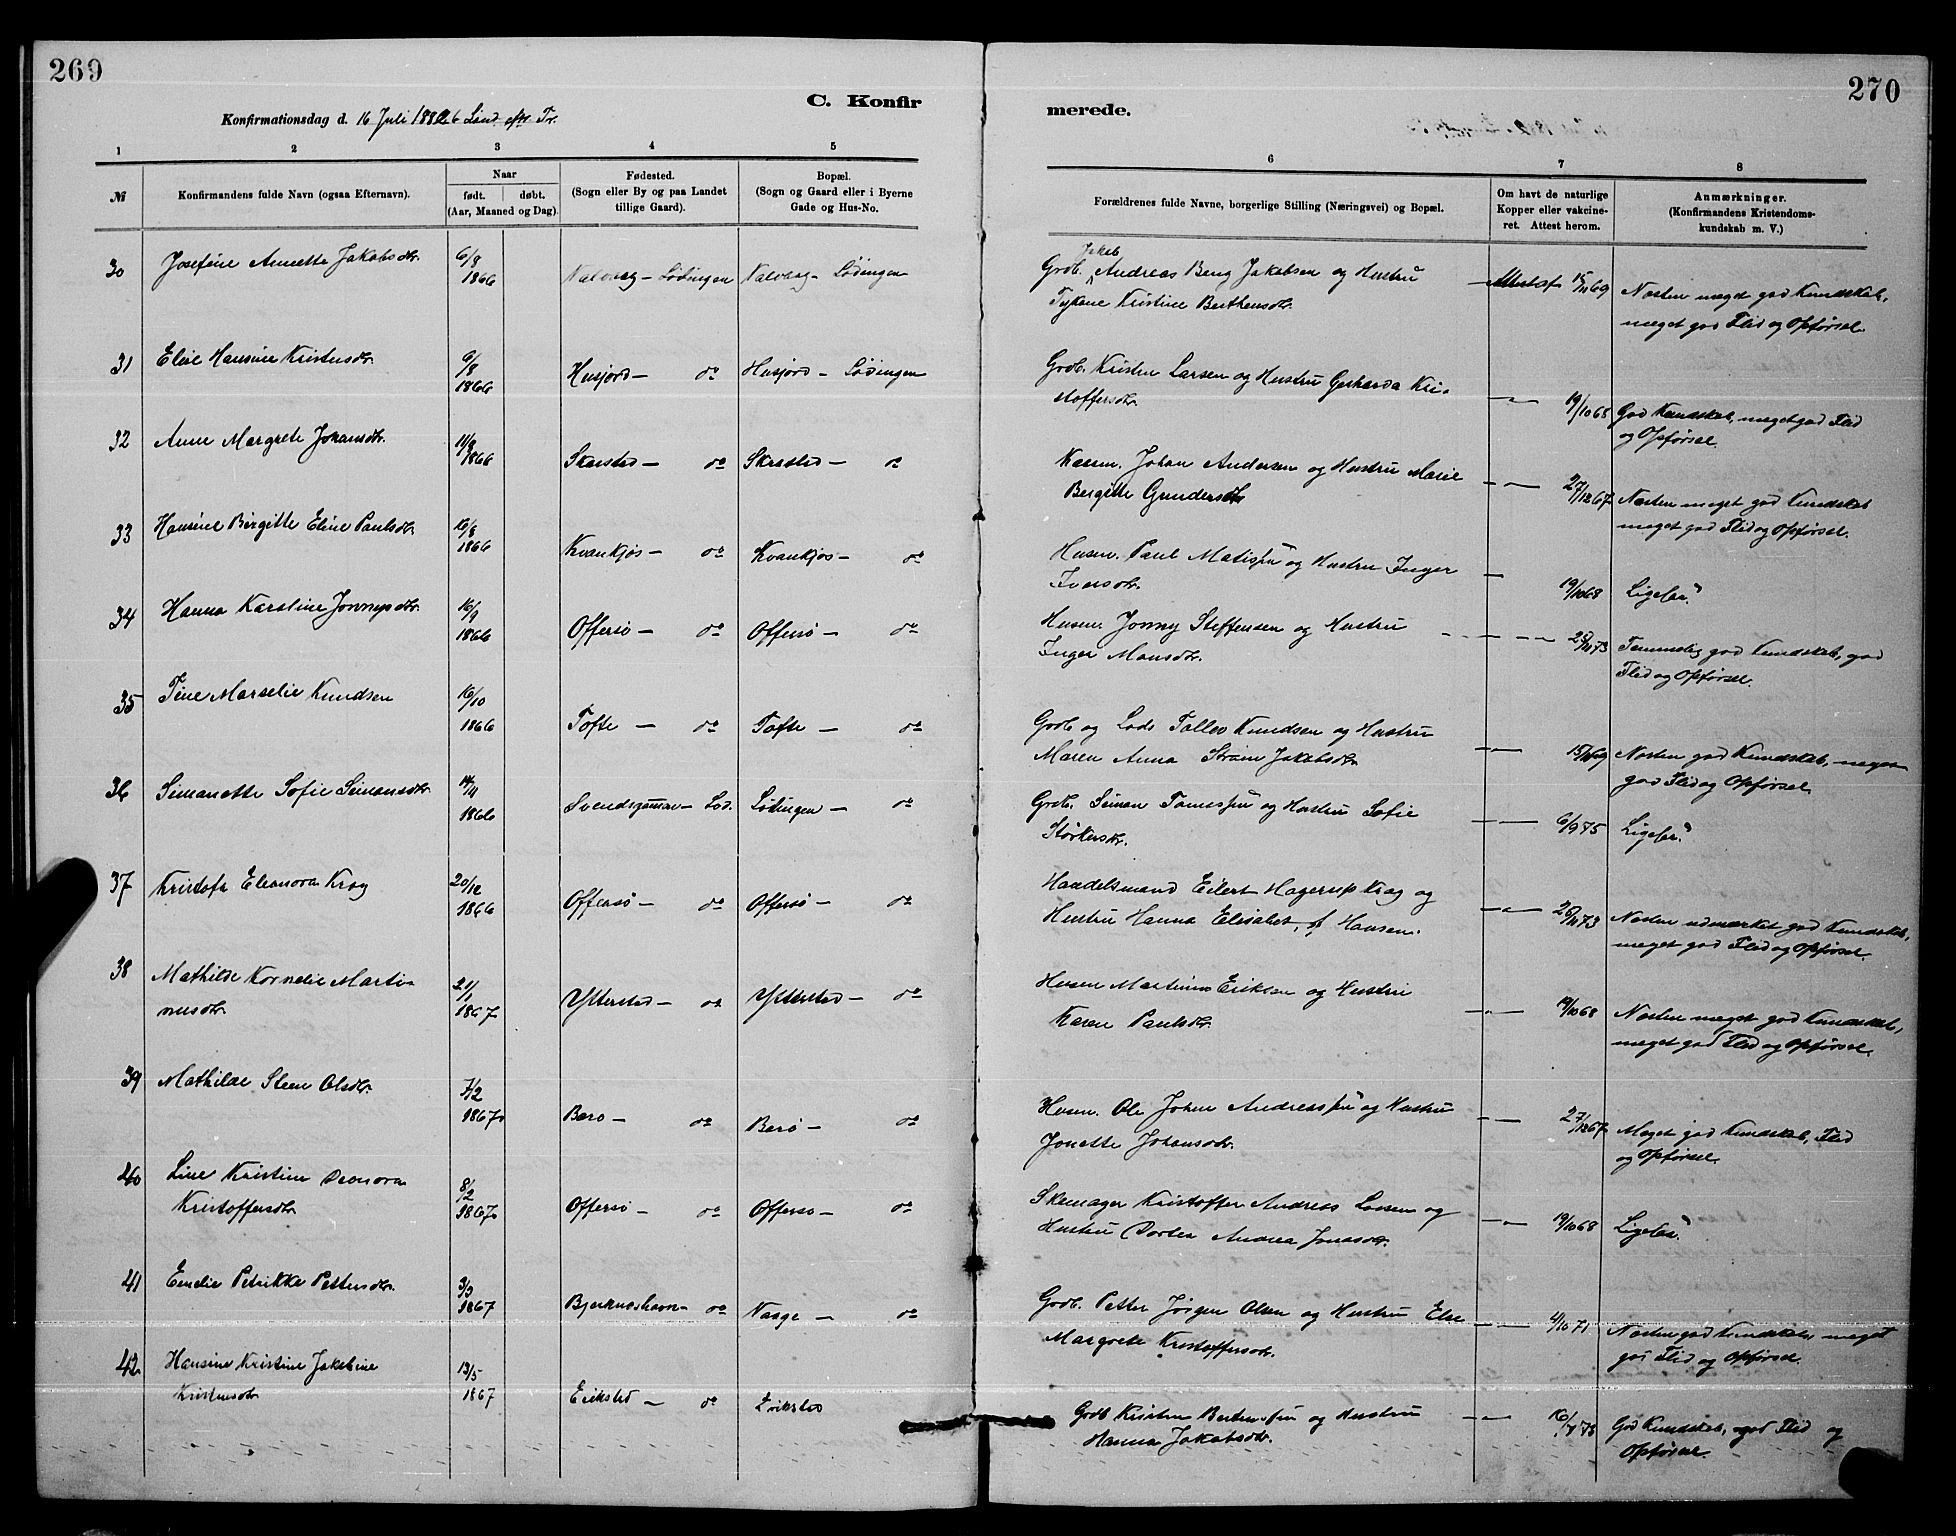 269
C. Konfir
Konfirmationsdag d. 16 Juli 1882 6 Sønd. eftr Tr.
1 2 3 4 5
№ Konfirmandens fulde Navn (ogsaa Efternavn). Naar født. døbt. (Aar, Maaned og Dag). Fødested. (Sogn eller By og paa Landet tillige Gaard). Bopæl. (Sogn og Gaard eller i Byerne Gade og Hus-No.
30 Josefine Annette Jakobsdtr. 6/8 1866 Nalvaag – Lødingen Nalvaag – Lødingen
31 Eline Hansine Kristensdtr. 6/8 1866 Husjord – do Husjord – Lødingen
32 Anne Margrete Johansdtr. 11/8 1866 Skarstad – do Skarstad – do
33 Hansine Birgitte Eline Paulsdtr. 16/8 1866 Kvankjøs – do Kvankjøs – do
34 Hanna Karoline Jonnysdtr. 16/9 1866 Offersø – do Offersø – do
35 Tine Marselie Knudsen 16/10 1866 Tofte – do Tofte – do
36 Simonette Sofie Simonsdtr. 14/11 1866 Svendsgammen – Lød. Lødingen – do
37 Kristofa Eleonora Krog 20/12 1866 Offersø – do Offersø – do
38 Mathilde Kornelie Marti-
nusdtr. 21/1 1867 Ytterstad – do Ytterstad – do
39 Mathilde Steen Olsdtr. 7/2 1867 Barø – do Barø – do
40 Line Kristine Deonora
Kristoffersdtr. 8/2 1867 Offersø – do Offersø – do
41 Emelie Petrikke Pettersdtr. 3/3 1867 Bjerknashavn – do Naage – do
42 Hansine Kristine Jakobine
Kristensdtr. 13/5 1867 Erikstad – do Erikstad
270
merede.
6 7 8
Forældrenes fulde Navne, borgerlige Stilling (Næringsvei) og Bopæl. Om havt de naturlige Kopper eller vakcineret. Attest herom. Anmærkninger. (Konfirmandens Kristendomskundskab m. V.)
Jakob
Grdb. Andreas Beng Jakobsen og Hustru Attest af 15/11 69 Næsten meget god Kundskab,
Kristine Berthensdtr. meget god Flid og Opførsel.
Grdb. Kristen Larsen og Hustru Gerharda Kri-
stoffersdtr. –„– 19/10 68 God Kundskab, meget god Flid
og Opførsel.
Johan Andersen og Hustru Marie
Bergitte Grundersdtr. –„– 27/12 67 Næsten meget god Kundskab
meget god Flid og Opførsel.
Husm. Paul Matisen og Hustru Inger
Iversdtr. – 19/10 68 Ligesaa.
Husm. Jonny Steffensen og Hustru
Inger Monsdtr. –„– 28/11 73 Temmelig god Kundskab, god
Flid og Opførsel.
Grdb og Lods Tollev Knudsen og Hustru
Maren Anna Strøm Jakobsdtr. –„– Næsten god Kundskab, meget
god Flid og Opførsel.
Grdb. Simon Tomesen og Hustru Sofie
Størkersdtr. –„– 6/9 75 Ligesaa.
Handelsmand Eilert Hagerup Krog og
Hustru Hanna Elisabet, f. Hansen. –„– 28/11 73 Næsten udmærket god Kundskab,
meget god Flid og Opførsel.
Husm Martinus Eriksen og Hustru
Karen Paulsdtr. –„– 19/10 68 Næsten meget god Kundskab,
meget god Flid og Opførsel.
Husm. Ole Johan Andreassen og Hustru
Jonette Johansdtr. –„– 27/12 67 Meget god Kundskab, Flid
og Opførsel.
Skomager Kristoffer Andreas Larsen og
Hustru Dortea Andrea Jonasdtr. –„– 19/10 68 Ligesaa.
Grdb. Petter Jørgen Olsen og Hustru Else
Margrete Kristoffersdtr. –„– 4/10 71 Næsten god Kundskab, meget
god Flid og Opførsel.
Grdb Kristen Bertensen og Hustru
Hanna Jakobsdtr. –„– God Kundskab, god Flid og
Opførsel.